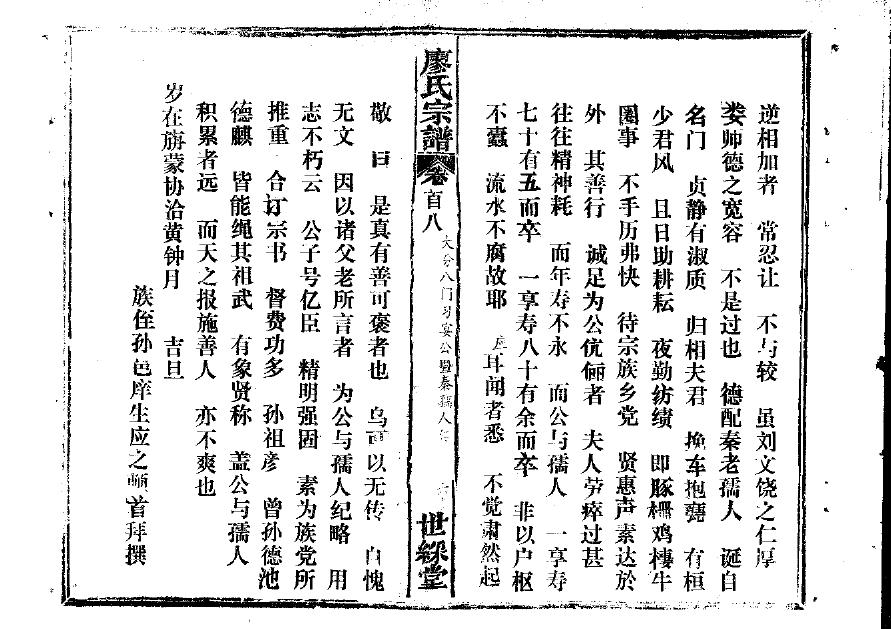 逆相加者 常忍让 不与较 虽刘文饶之仁厚
娄师德之宽容 不是过也 德配秦老孺人 诞自
名门 贞静有淑质 归相夫君 挽车抱甕 有桓
少君风 且日助耕耘 夜勤纺绩 即豚栅鸡棲牛
圈事 不手历弗快 待宗族乡党 贤惠声素达於
外 其善行 诚足为公伉俪者 夫人劳瘁过甚
往往精神耗 而年寿不永 而公与孺人 一享寿
七十有五而卒 一享寿八十有余而卒 非以户枢
不蠹 流水不腐故耶 耳闻者悉 不觉肃然起
廖氏宗譜
卷首八
大分八门习宾公暨秦孺人
世綵堂
敬曰 是真有善可褒者也 乌可以无传 自愧
无文 因以诸父老所言者 为公与孺人纪略 用
志不朽云 公子号亿臣 精明强固 素为族党所
推重 合订宗书 督费功多 孙祖彦 曾孙德池
德麒 皆能绳其祖武 有象贤称 盖公与孺人
积累者远 而天之报施善人 亦不爽也
岁在旃蒙协洽黄钟月 吉旦
族侄孙邑庠生应之顿首拜撰